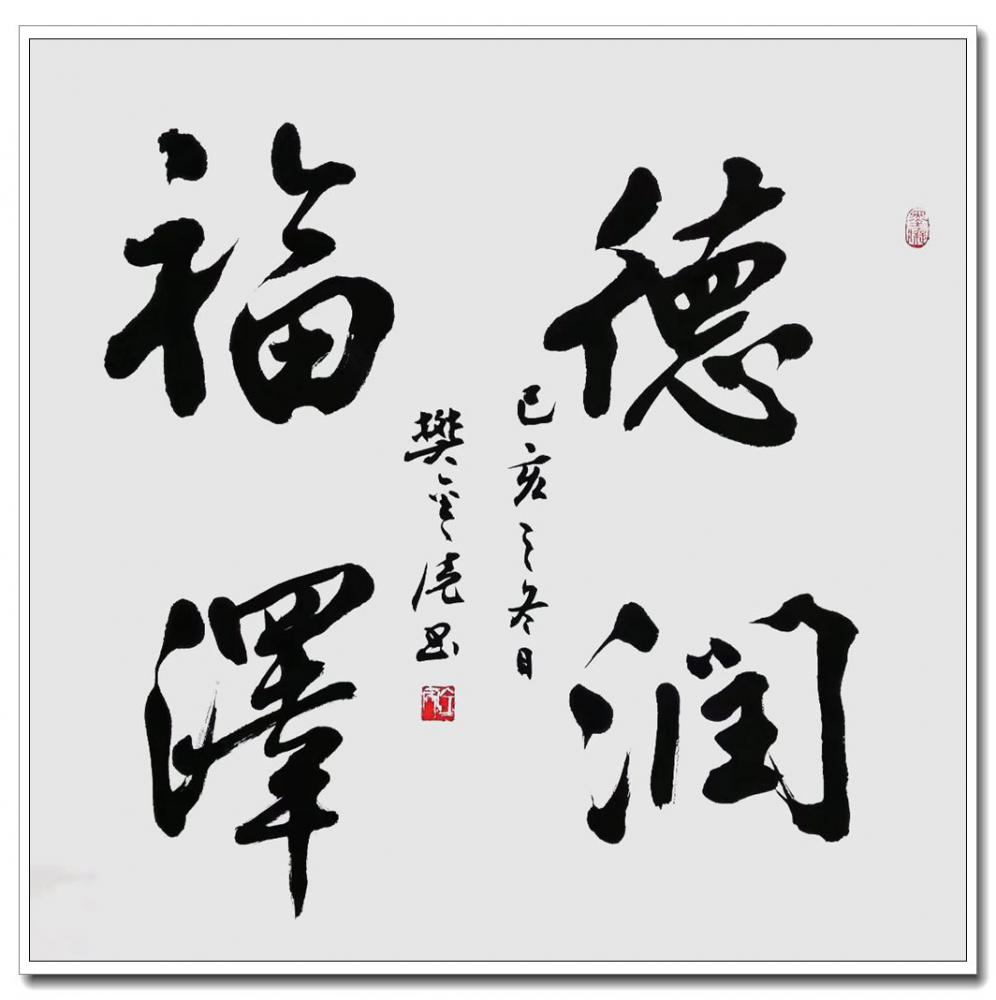 德润
福澤
己亥之冬日
樊
书